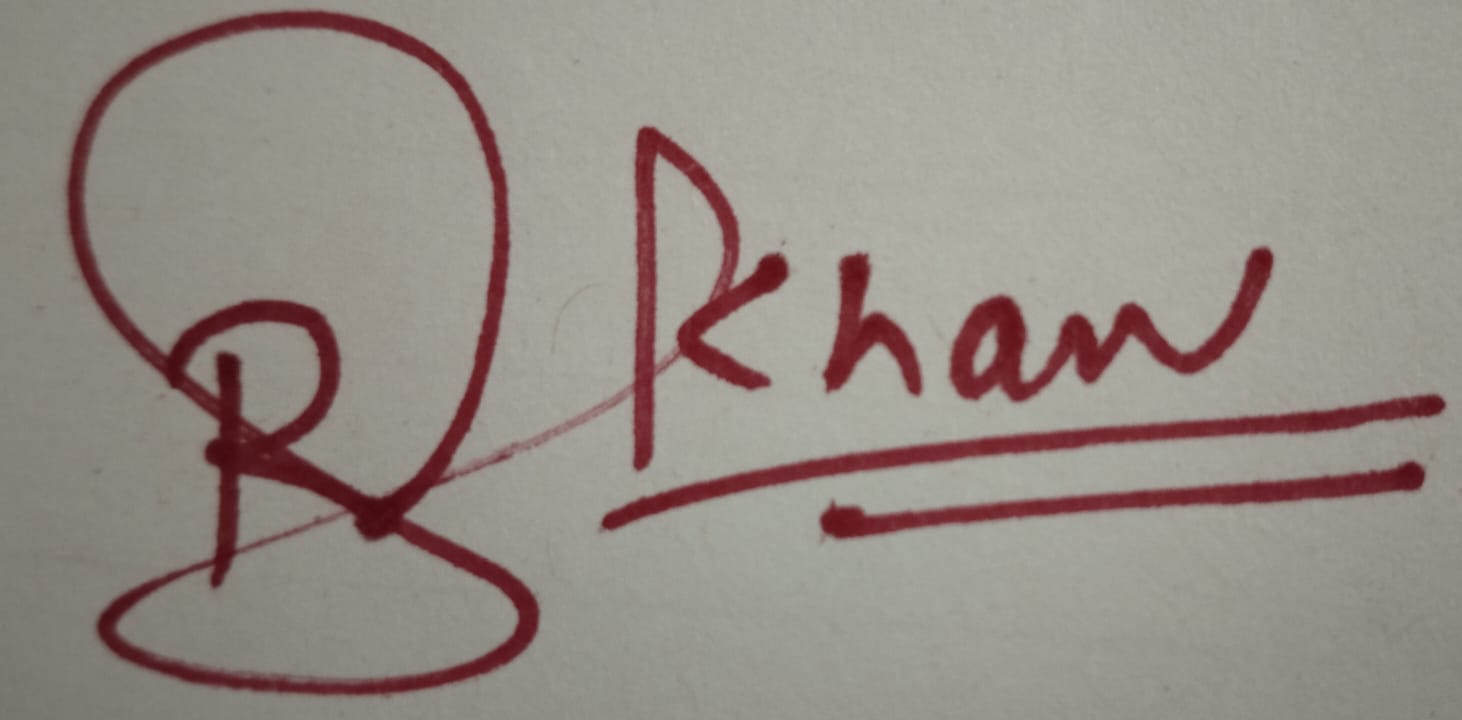 R Khan